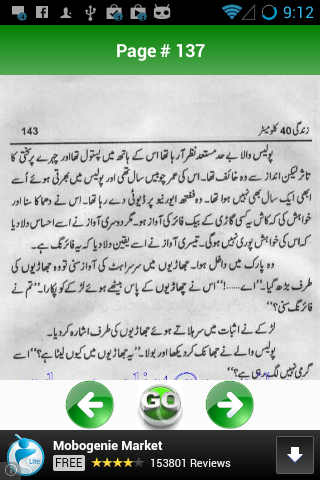 9:12
Page # 137
زندگی 40 کلومیٹر 143
پولیس والا بے حد مستعد نظر آ رہا تھا اس کے ہاتھ میں پستول تھا اور چہرے پر سختی کا
تاثر لیکن انداز سے وہ خائف تھا۔ اس کی عمر چوبیس سال تھی اور پولیس میں بھرتی ہوئے اُسے
ابھی ایک سال بھی نہیں ہوا تھا۔ وہ ففتھ ایونیو پر ڈیوٹی دے رہا تھا۔ اس نے دھماکا سنا اور
خواہش کی کہ کاش یہ کسی گاڑی کے بیک فائر کی آواز ہو۔ مگر دوسری آواز نے اسے احساس دلا دیا
کہ اس کی خواہش پوری نہیں ہو گی۔ تیسری آواز نے اسے یقین دلا دیا کہ یہ فائرنگ ہے۔
وہ پارک میں داخل ہوا۔ جھاڑیوں میں سرسراہٹ کی آواز سنی تو وہ جھاڑیوں کی
طرف بڑھ گیا۔ ”اے......!“ اس نے جھاڑیوں کے پاس بیٹھے ہوئے لڑکے کو پکارا۔ ”تم نے
فائرنگ سنی؟“
لڑکے نے اثبات میں سر ہلاتے ہوئے جھاڑیوں کی طرف اشارہ کر دیا۔
پولیس والے نے جھانک کر دیکھا اور بولا۔ ”یہ جھاڑیوں میں کیوں لیٹا ہے؟“ اسے
گرمی نہیں لگ رہی ہے؟“
GO
Mobogenie Market
Lite FREE 153801 Reviews